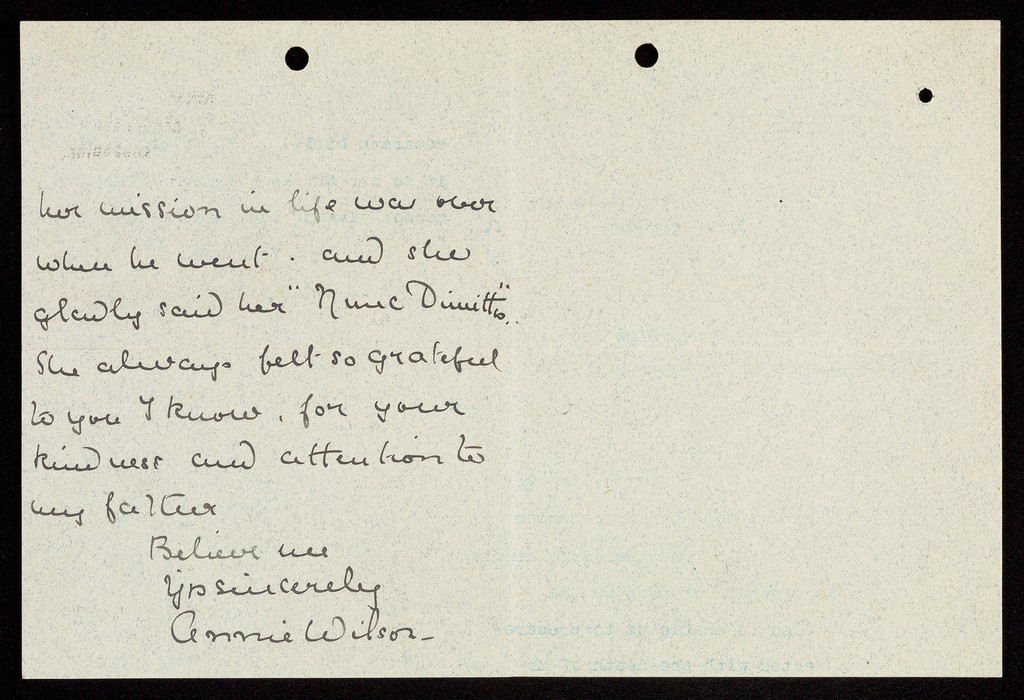 her mission in life was over
when he went. and she
gladly said her "Nunc Dimittis".
She always felt so grateful
to you I know, for your
kindness and attention to
my father
Believe me
Yrs sincerely
Annie Wilson